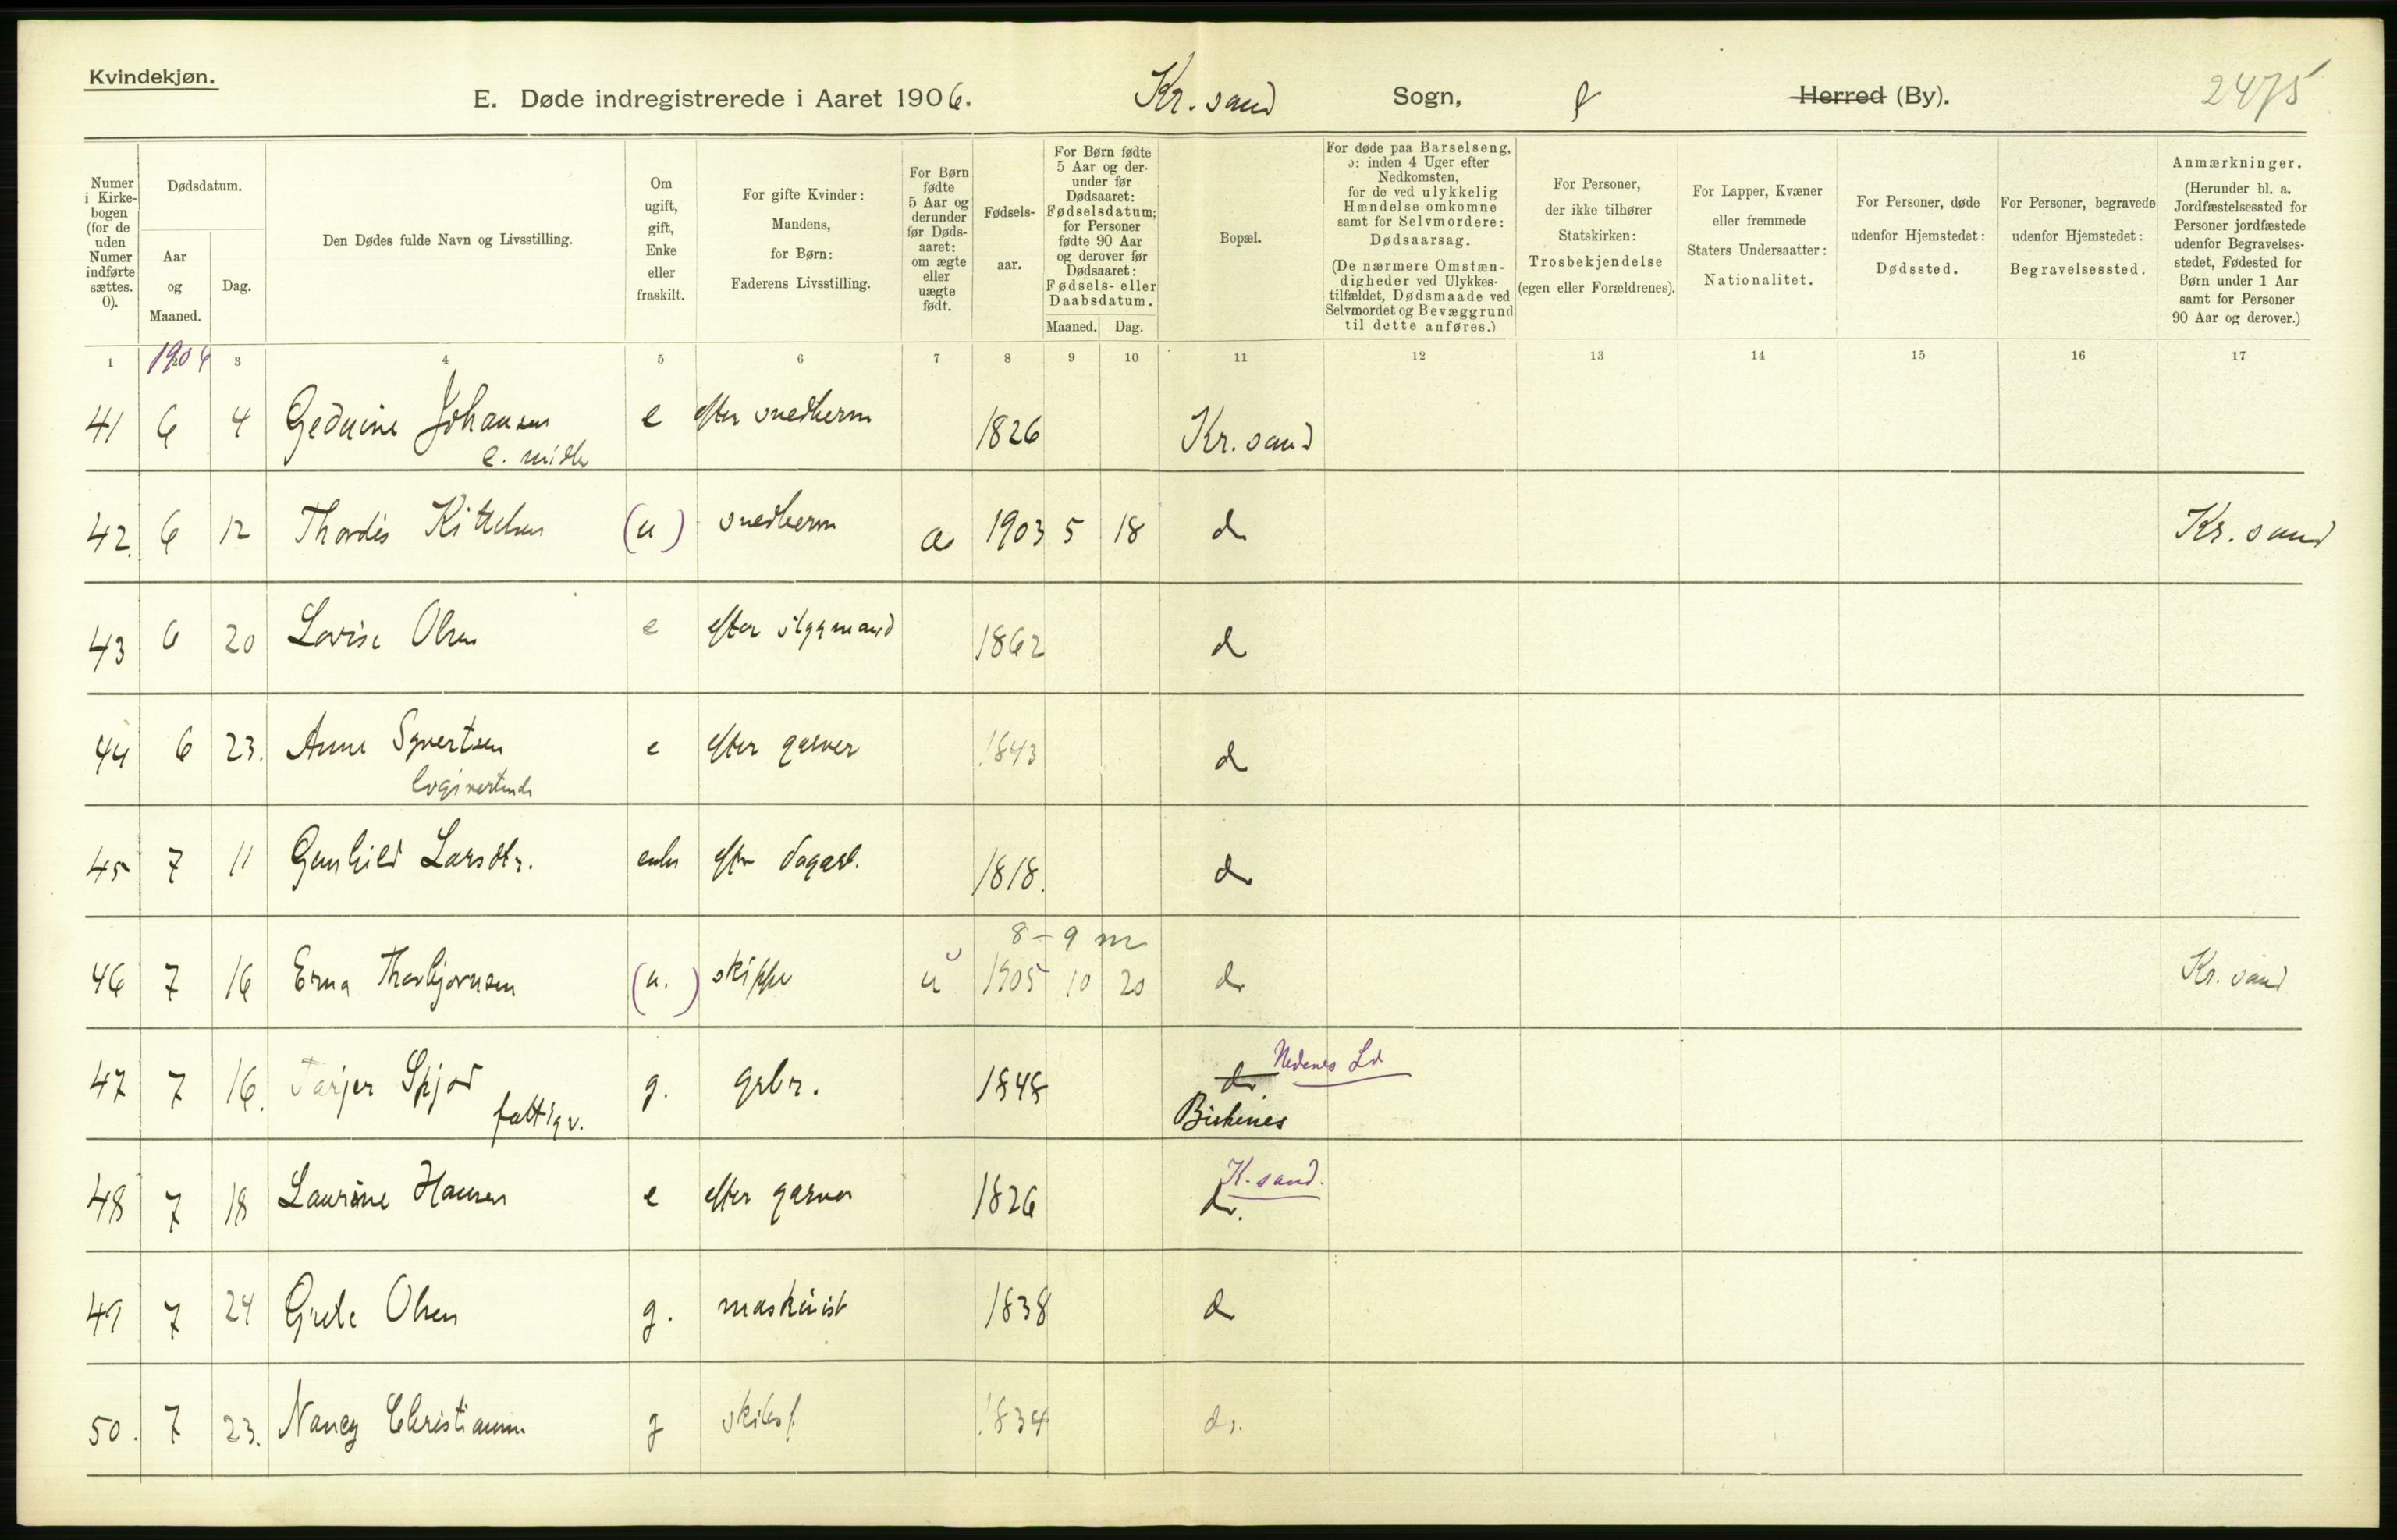 Kvindekjøn.
E. Døde indregistrerede i Aaret 1906. Kr. sand Sogn, Herred (By). 2475
Numer i Kirkebogen (for de uden Numer indførte sættes. 0).
Dødsdatum.
Aar og Maaned.
Dag.
Den Dødes fulde Navn og Livsstilling.
Om ugift, gift, Enke eller fraskilt.
For gifte Kvinder: Mandens, for Børn: Faderens Livsstilling.
For Børn fødte 5 Aar og derunder før Dødsaaret: om ægte eller uægte født.
Fødselsaar.
For Børn fødte 5 Aar og derunder før Dødsaaret: Fødselsdatum; for Personer fødte 90 Aar og derover før Dødsaaret: Fødsels- eller Daabsdatum.
Maaned. Dag.
Bopæl.
For døde paa Barselseng, ɔ: inden 4 Uger efter Nedkomsten, for de ved ulykkelig Hændelse omkomne samt for Selvmordere: Dødsaarsag.
(De nærmere Omstændigheder ved Ulykkestilfældet, Dødsmaade ved Selvmordet og Bevæggrund til dette anføres.)
For Personer, der ikke tilhører Statskirken: Trosbekjendelse (egen eller Forældrenes).
For Lapper, Kvæner eller fremmede Staters Undersaatter: Nationalitet.
For Personer, døde udenfor Hjemstedet: Dødssted.
For Personer, begravede udenfor Hjemstedet: Begravelsessted.
Anmærkninger.
(Herunder bl. a. Jordfæstelsessted for Personer jordfæstede udenfor Begravelsesstedet, Fødested for Børn under 1 Aar samt for Personer 90 Aar og derover.)
1 1906 3 4 5 6 7 8 9 10 11 12 13 14 15 16 17
41 6 4 Johansen e efter snedkerm 1826 Kr. sand
e. midler
42. 6 12 Thordis Kittelsen (u) snedkerm 1903 5 18 d Kr. sand
43 6 20 Lovise Olsen e efter 1862 d
44 6 23. Anne Syvertsen e efter garver 1843 d
logivertinde
45 7 11 Gunhild Larsdtr. enke efter dagarb. 1818. do
8-9 m
46 7 16 Erna Thorbjørnsen (u.) skipper u 1905 10 20 do Kr. sand
47 7 16. Tarjer g. grbr. 1848 do Nedenes
fattigv. Birkenes
K. sand.
48 7 18 Laurine Hansen e efter garver 1826 do.
49 7 24 Grete Olsen g. maskinist 1838 d
50. 7 23. Nancy Christiansen g skibsf. 1834 do.